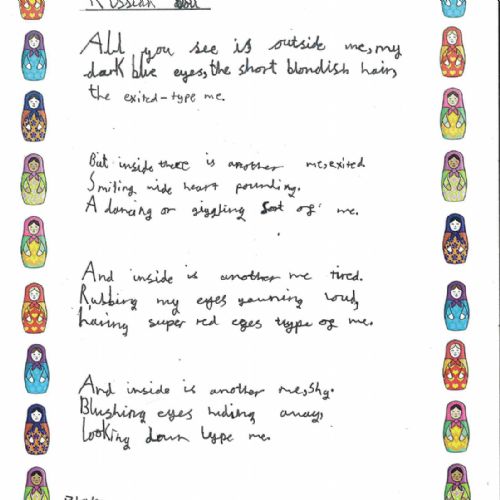 Russian Doll
All you see is outside me, my
dark blue eyes, the short blondish hair,
the exited-type me.
But inside there is another me, exited
Smiling wide heart pounding.
A dancing or giggling sort of me.
And inside is another me tired.
Rubbing my eyes yawning loud,
having super red eyes type of me.
And inside is another me, shy.
Blushing eyes hiding away,
looking down type me.